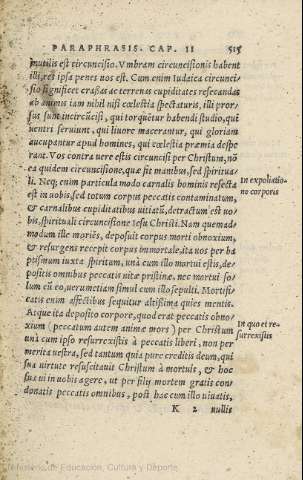 PARAPHRASIS. CAP. II 515
inutilis est circuncisio. Vmbram circuncisionis habent
illi, res ipsa penes uos est. Cum enim Iudaica circunci-
sio significet crassas ac terrenas cupiditates resecandas
ab animis iam nihil nisi cœlestia spectaturis, illi pror-
sus sunt incircūcisi, qui torquētur habendi studio, qui
uentri seruiunt, qui liuore macerantur, qui gloriam
aucupantur apud homines, qui cœlestia præmia despe
rant. Vos contra uere estis circuncisi per Christum, nō
ea quidem circuncisione, quæ fit manibus, sed spiritua-
li. Neq; enim particula modo carnalis hominis resecta
est in uobis, sed totum corpus peccatis contaminatum,
& carnalibus cupiditatibus uitiatū, detractum est uo-
bis, spirituali circuncisione Iesu Christi. Nam quemad-
modum ille moriēs, deposuit corpus morti obnoxium,
& resurgens recepit corpus immortale, ita uos per ba
ptismum iuxta spiritum, unà cum illo mortui estis, de-
positis omnibus peccatis uitæ pristinæ. nec mortui so-
lum cū eo, uerumetiam simul cum illo sepulti. Mortifi-
catis enim affectibus sequitur altissima quies mentis.
Atque ita deposito corpore, quod erat peccatis obno-
xium (peccatum autem animæ mors) per Christum
unà cum ipso resurrexistis à peccatis liberi, non per
merita uestra, sed tantum quia pure creditis deum, qui
sua uirtute resuscitauit Christum à mortuis, & hoc
suæ ui in uobis agere, ut per filij mortem gratis con-
donatis peccatis omnibus, post hac cum illo uiuatis,
K 2 nullis
In expoliatio-
no corporis
In quo et re-
surrexistis
Ministerio de Educación, Cultura y Deporte